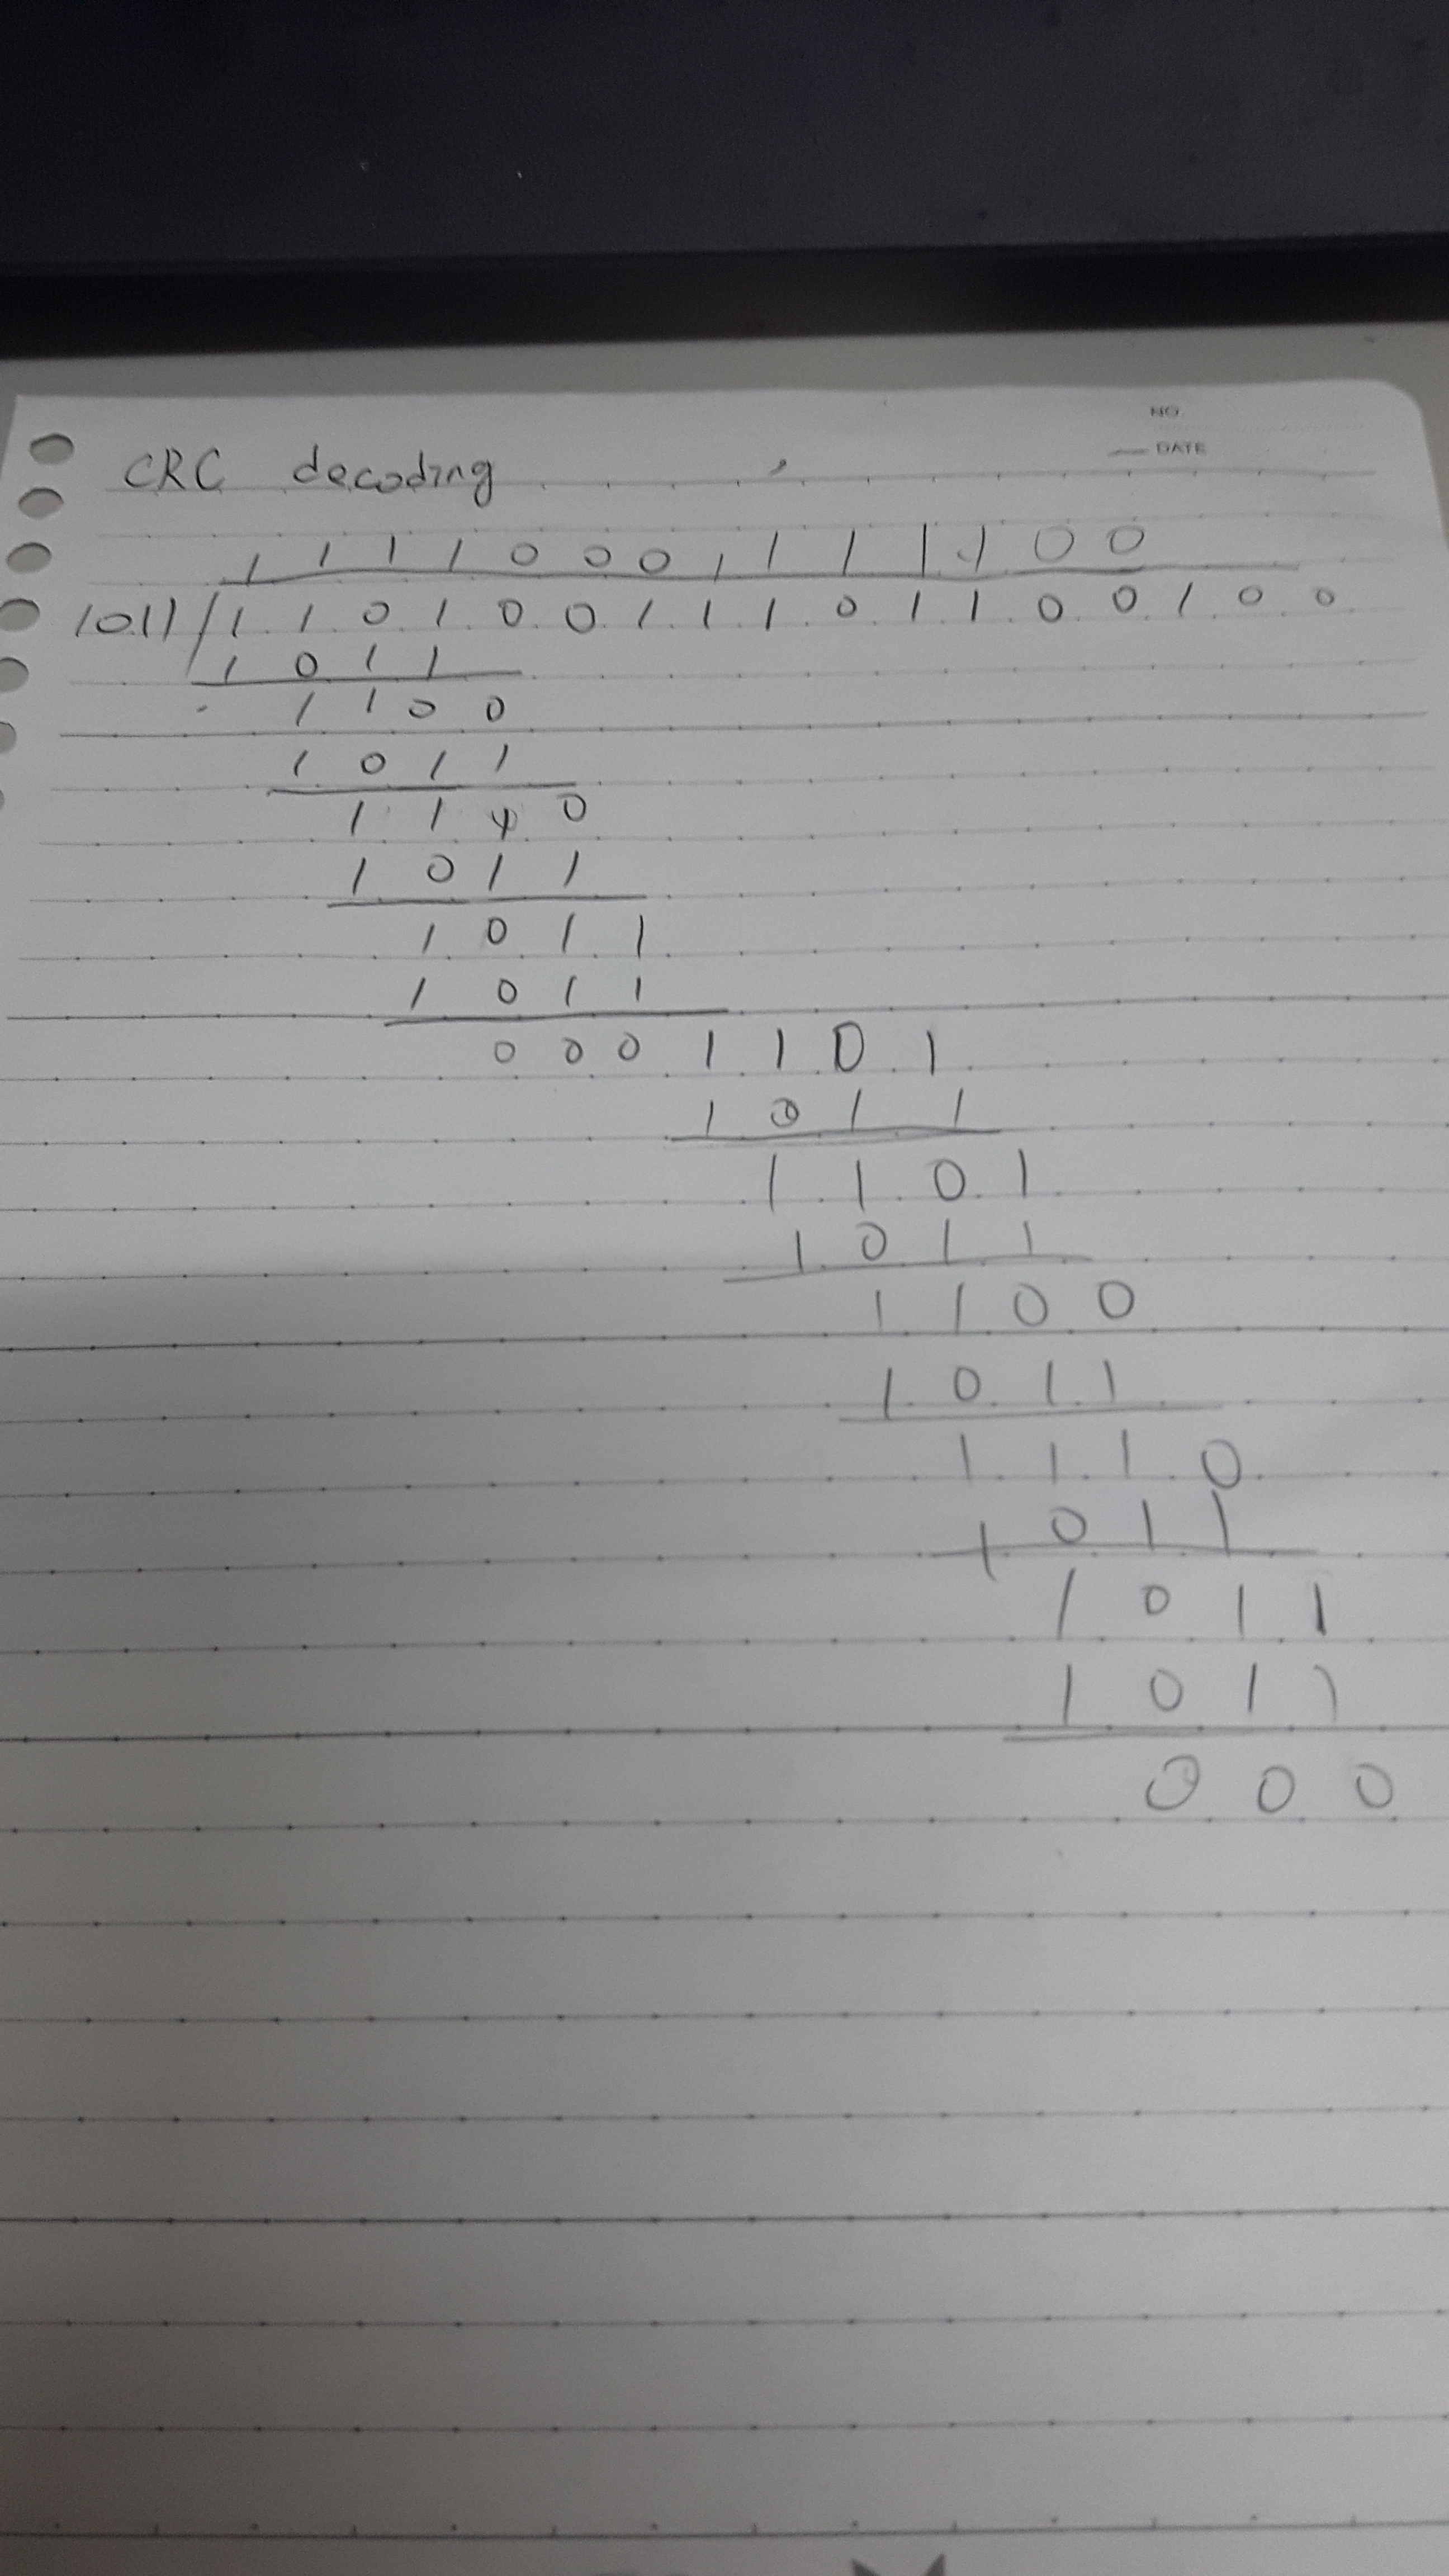 NO.
DATE
CRC decoding
1 1 1 1 0 0 0 1 1 1 1 1 0 0
1011 / 1 1 0 1 0 0 1 1 1 0 1 1 0 0 1 0 0
1 0 1 1
1 1 0 0
1 0 1 1
1 1 1 0
1 0 1 1
1 0 1 1
1 0 1 1
0 0 0 1 1 0 1
1 0 1 1
1 1 0 1
1 0 1 1
1 1 0 0
1 0 1 1
1 1 1 0
1 0 1 1
1 0 1 1
1 0 1 1
0 0 0